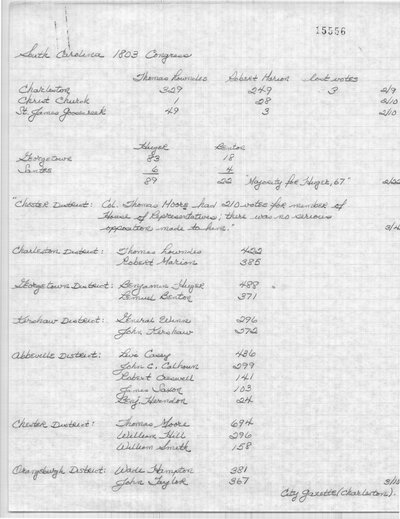 15556
South Carolina 1803 Congress
Thomas Lowndes Robert Marion lost votes
Charleston 329 249 3 2/9
Christ Church 1 28 2/10
St. James Goosecreek 49 3 2/10
Huger Benton
Georgetown 83 18
Santee 6 4
89 22 "Majority for Huger, 67"
"Chester District: Col. Thomas Moore had 210 votes for member of
House of Representatives; there was no serious
opposition made to him."
Charleston District: Thomas Lowndes 422
Robert Marion 385
Georgetown District: Benjamin Huger 488
Lemuel Benton 371
Kershaw District: General Winn 296
John Kershaw 272
Abbeville District: Levi Casey 486
John C. Calhoun 299
Robert Creswell 141
James Saxon 103
Benj. Herndon 24
Chester District: Thomas Moore 694
William Hill 296
William Smith 158
Orangeburgh District: Wade Hampton 381
John Taylor 367
City Gazette (Charleston).